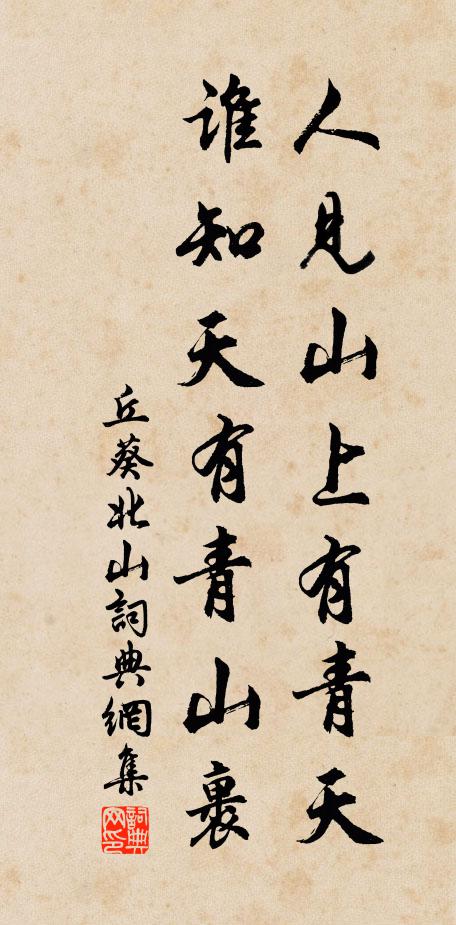 人見山上有青天
誰知天有青山裏
丘葵北山詞典網集
詞典網印